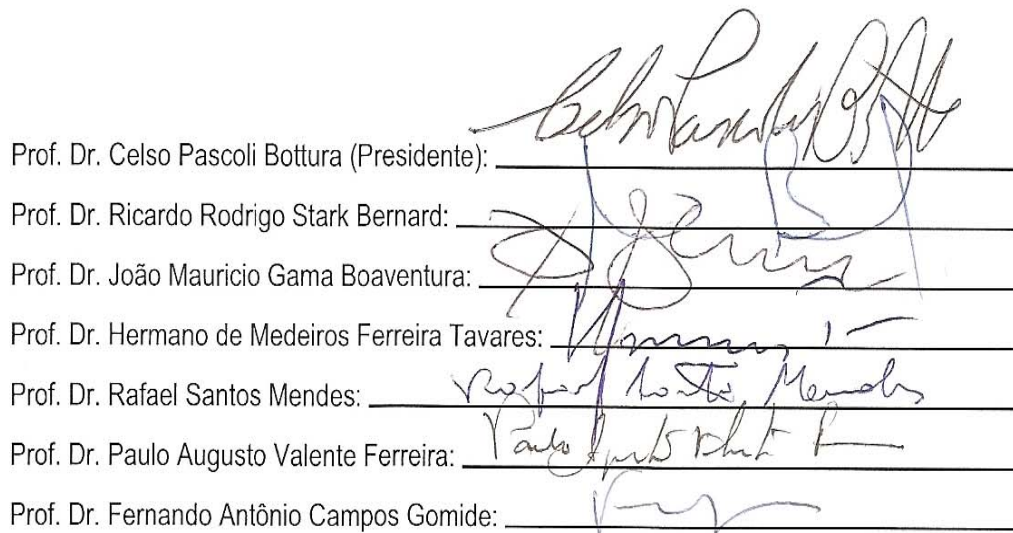 Prof. Dr. Celso Pascoli Bottura (Presidente):
Prof. Dr. Ricardo Rodrigo Stark Bernard:
Prof. Dr. João Mauricio Gama Boaventura:
Prof. Dr. Hermano de Medeiros Ferreira Tavares:
Prof. Dr. Rafael Santos Mendes: Rafael Santos Mendes
Prof. Dr. Paulo Augusto Valente Ferreira:
Prof. Dr. Fernando Antônio Campos Gomide: